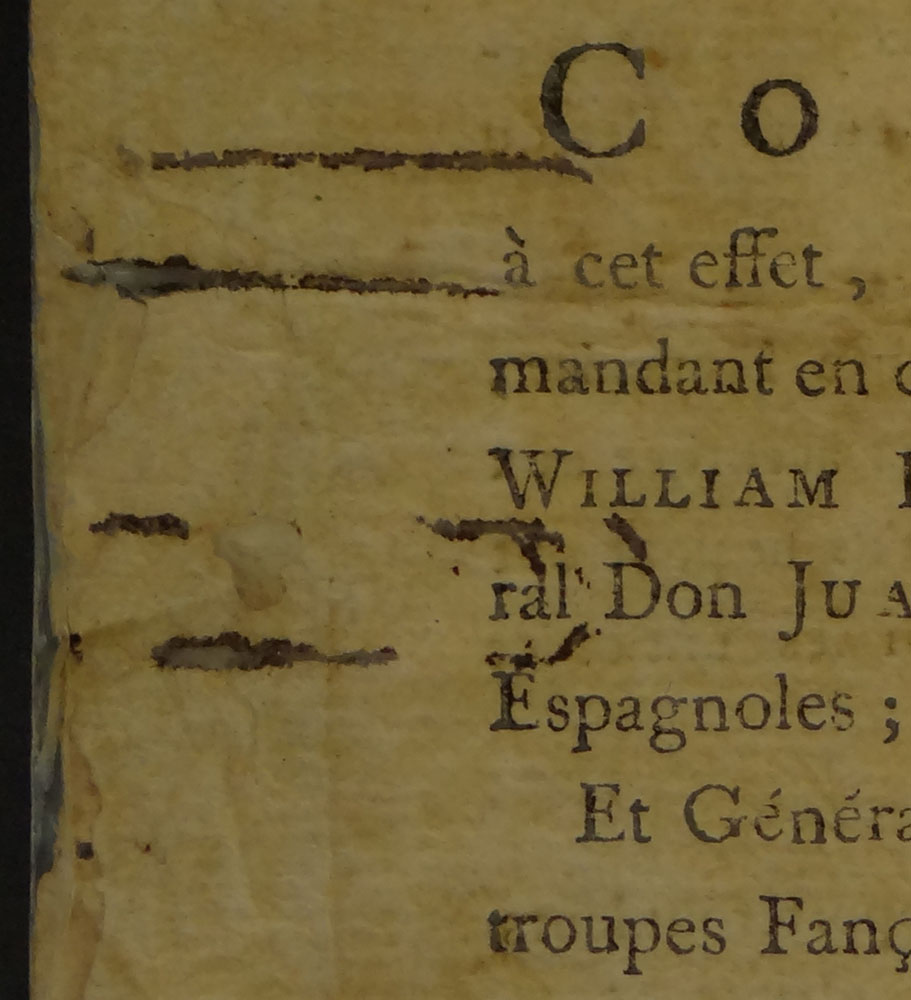 C O
à cet effet ,
mandant en
WILLIAM
ral Don JUA
Espagnoles ;
Et Généra
troupes Fanç